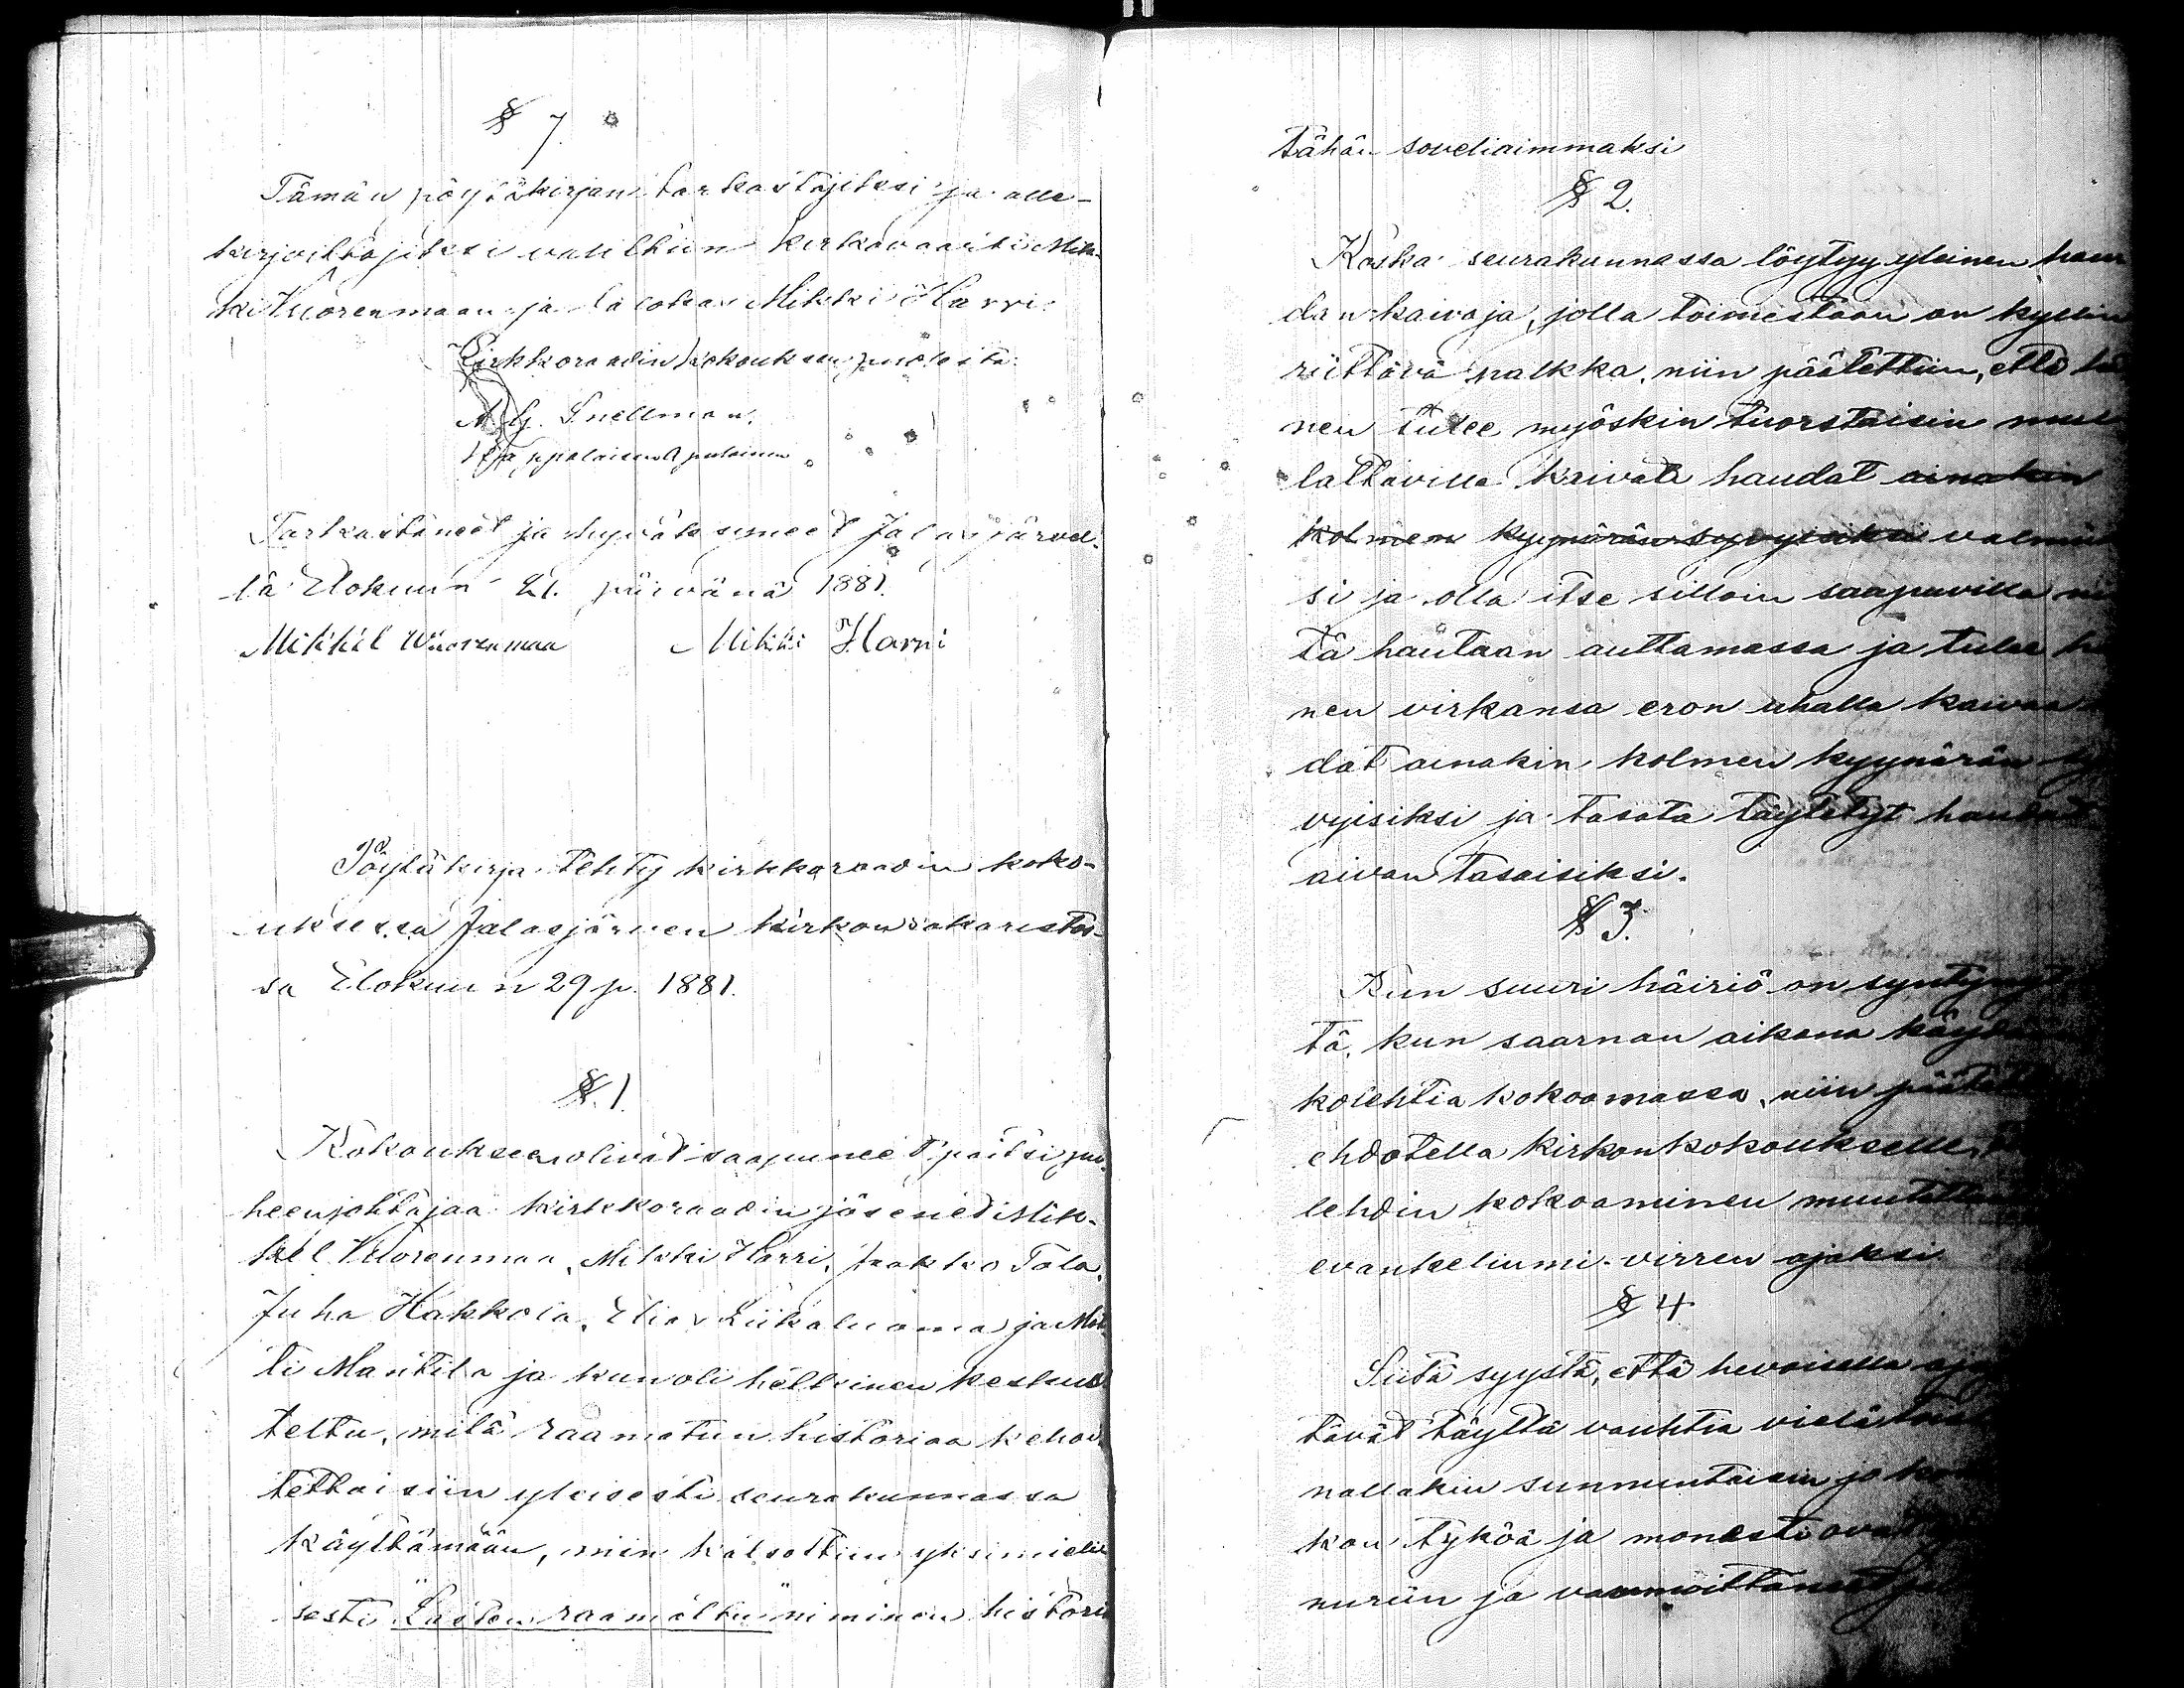 § 7.
Tämän pöytäkirjan tarkastajiksi ja alle-
kirjoittajiksi valittiin kirkovaarti Mik-
ki Wuorenmaan ja Mikki Harri.
Kirkkoraadin kokouksen puolesta:
A. G. Snellman.
Kappalaisen apulainen
Tarkastaneet ja hyväksyneet Jalasjärvel-
lä Elokuun 21. päivänä 1881.
Mikkil Wuorenmaa Mikki Harri
Pöytäkirja tehty kirkkoraadin koko-
uksessa Jalasjärven kirkon sakaristos-
sa Elokuun 29 p. 1881.
§. 1.
Kokoukseen olivat saapuneet paitsi pu-
heenjohtajaa kirkkoraadin jäsenet Mik-
kel Wuorenmaa, Mikki Harri, Jaakko Tala,
Juha Hakkola, Elias Liikaluoma ja Mat-
ti Mantila ja kun oli hetkinen keskus
teltu, mitä raamatun historiaa kehoi-
tettaisiin yleisesti seurakunnassa
käyttämään, niin katsottiin yksimieli
sesti "Lasten raamattu" niminen histori
tähän soveliaimmaksi
§ 2.
Koska seurakunnassa löytyy yleinen hau
dankaivaja, jolla toimestaan on kyllin
riittävä palkka, niin päätettiin, että hä
nen tulee myöskin tuorstaisin
lattaville kaivata haudat ainakin
kolmen kyynärän syvyisiksi valmii
si ja olla itse silloin saapuvilla
tä hautaan auttamassa ja tulee h
nen virkansa eron uhalla kaivaa
dat ainakin kolmen kyynärän sy
vyisiksi ja tasata täytetyt haudat
aivan tasaisiksi.
§ 3.
Kun suuri häiriö on syntynyt
tä, kun saarnan aikana käyd
kolehtia kokoomassa, niin päätet
ehdotella kirkonkokoukselle,
lehdin kokoominen muutetta
evankeliumi-virren ajaksi
§ 4
Siitä syystä, että hevoisella aja
tävät täyttä vauhtia vielä
nallakin sunnuntaisin
kon tyköä ja monesti ovat
nuriin ja vammoittaneet